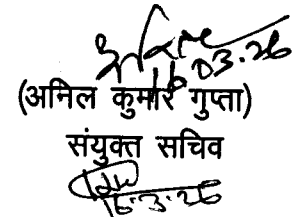 16.03.26
(अनिल कुमार गुप्ता)
संयुक्त सचिव
16.3.26